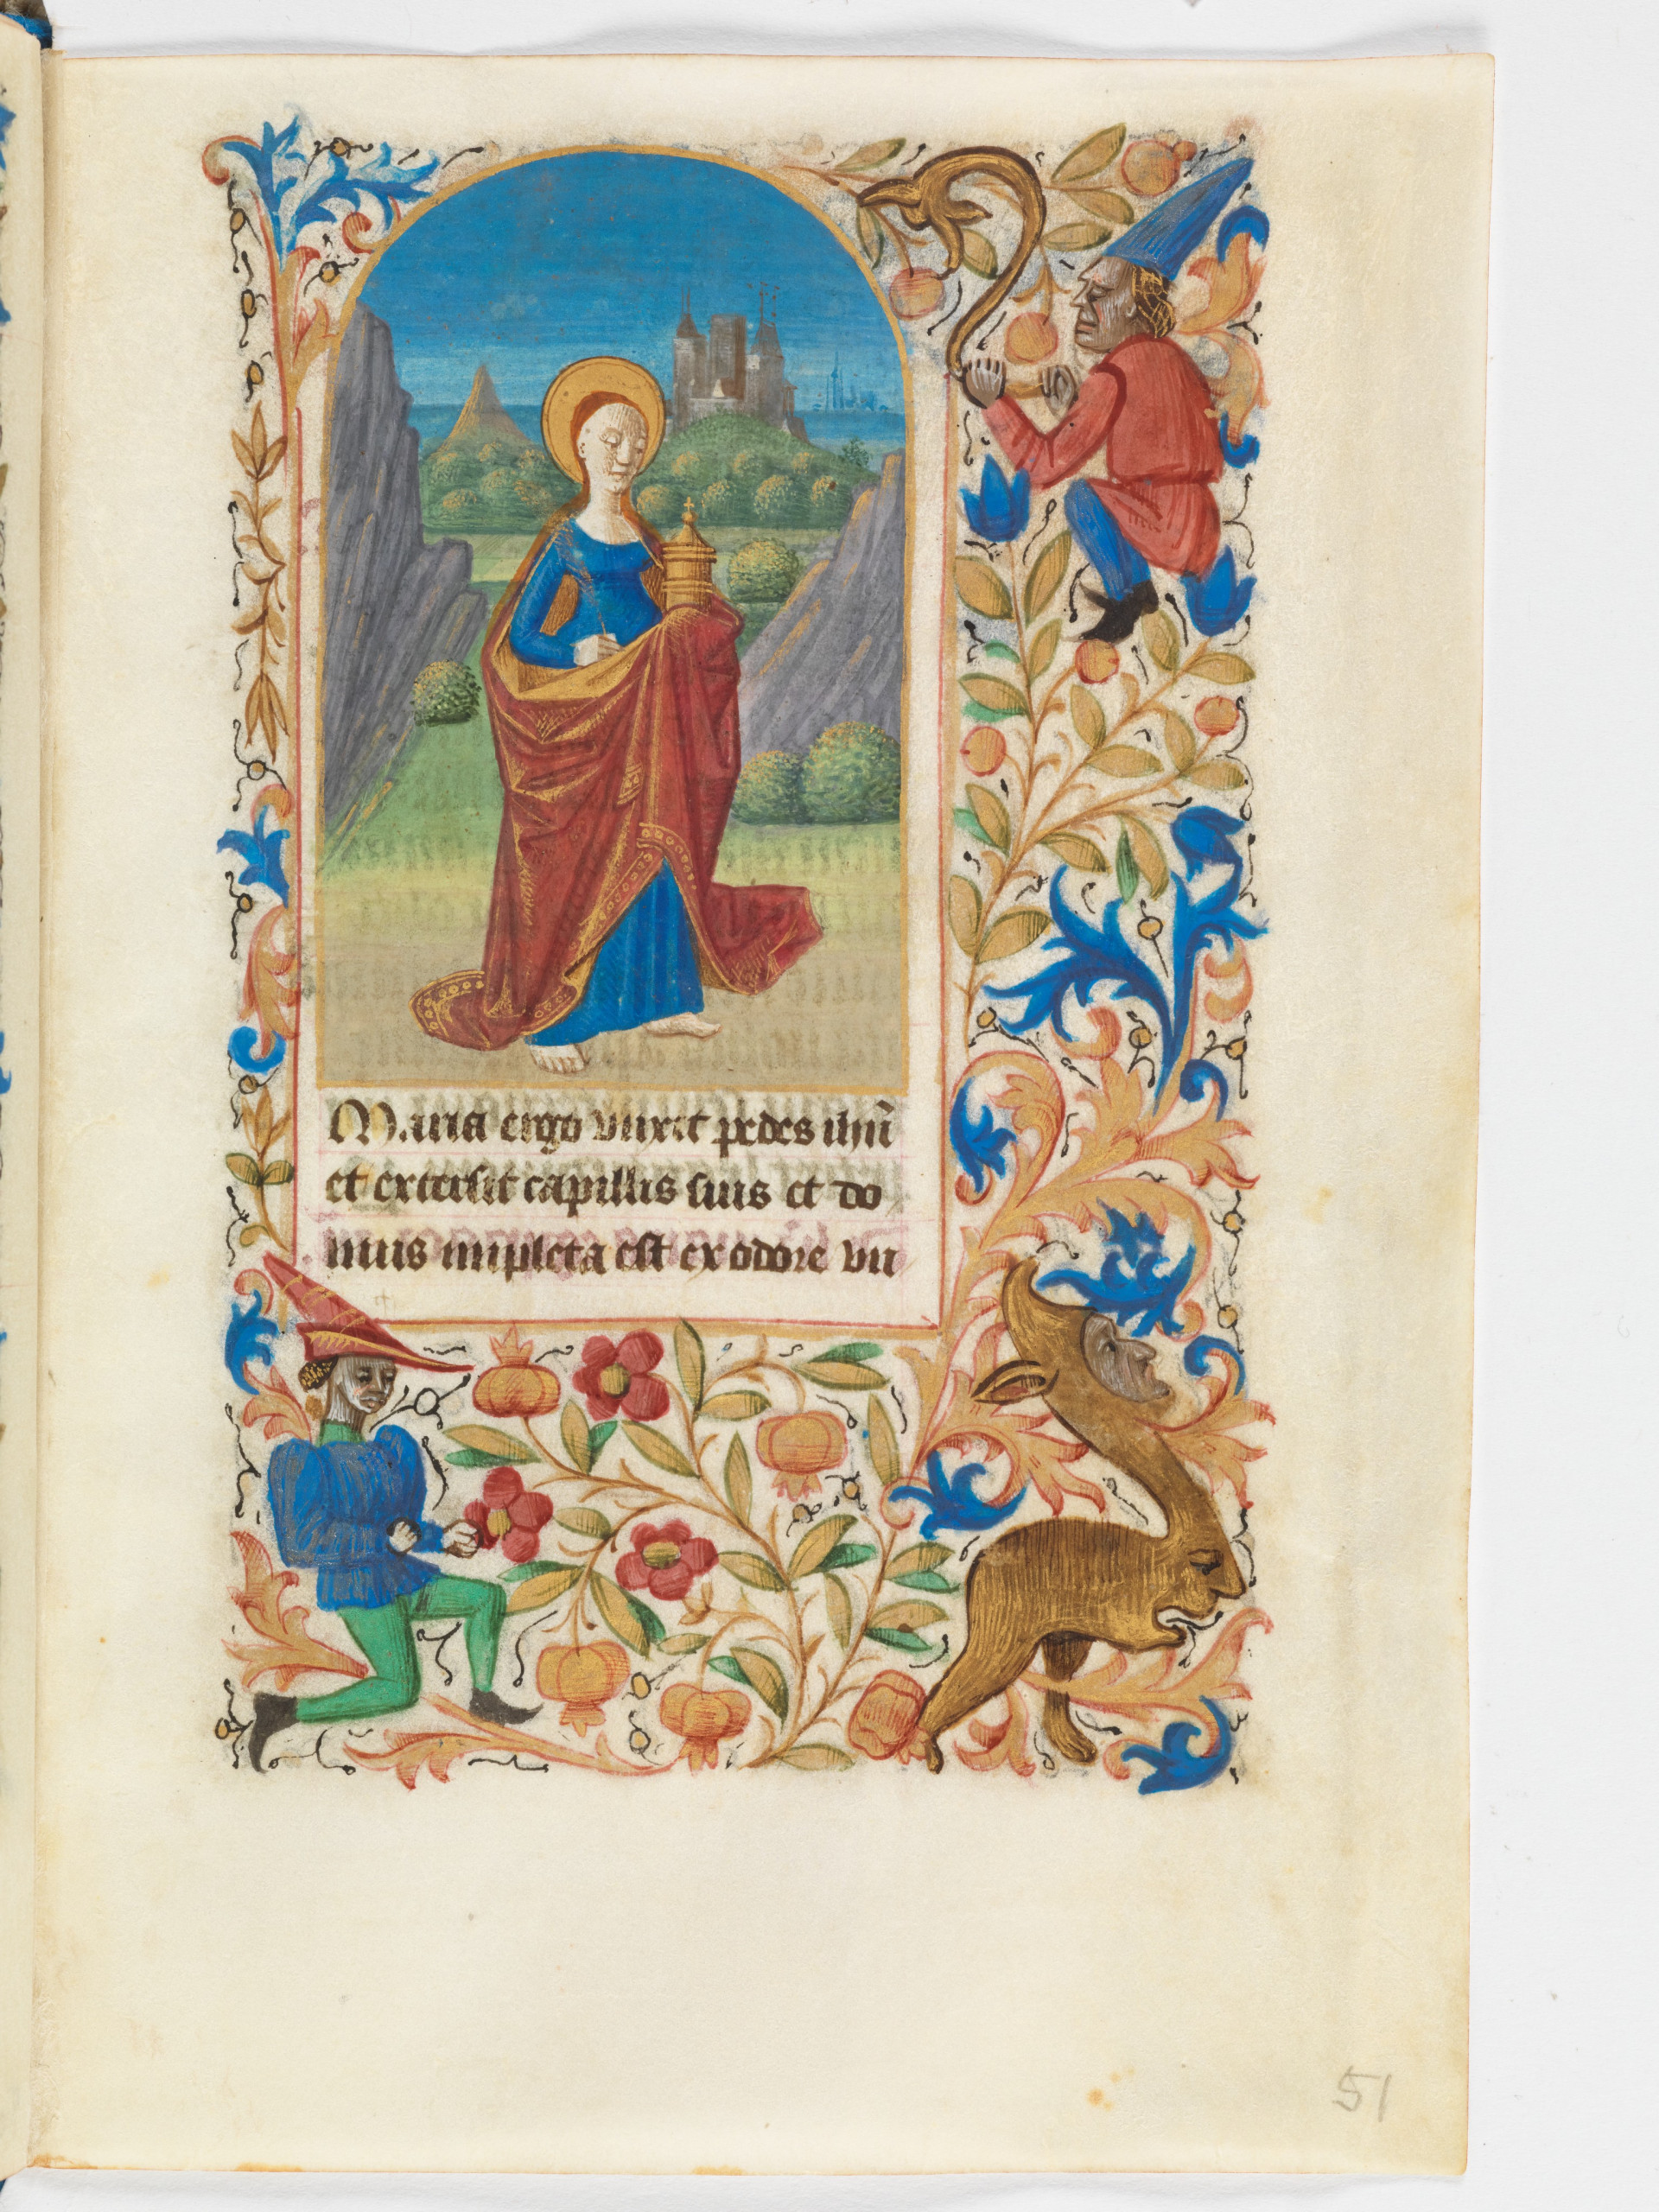 Maria ergo vnxit pedes ihũ
et extersit capillis suis et do
mus impleta est ex odore vn
51